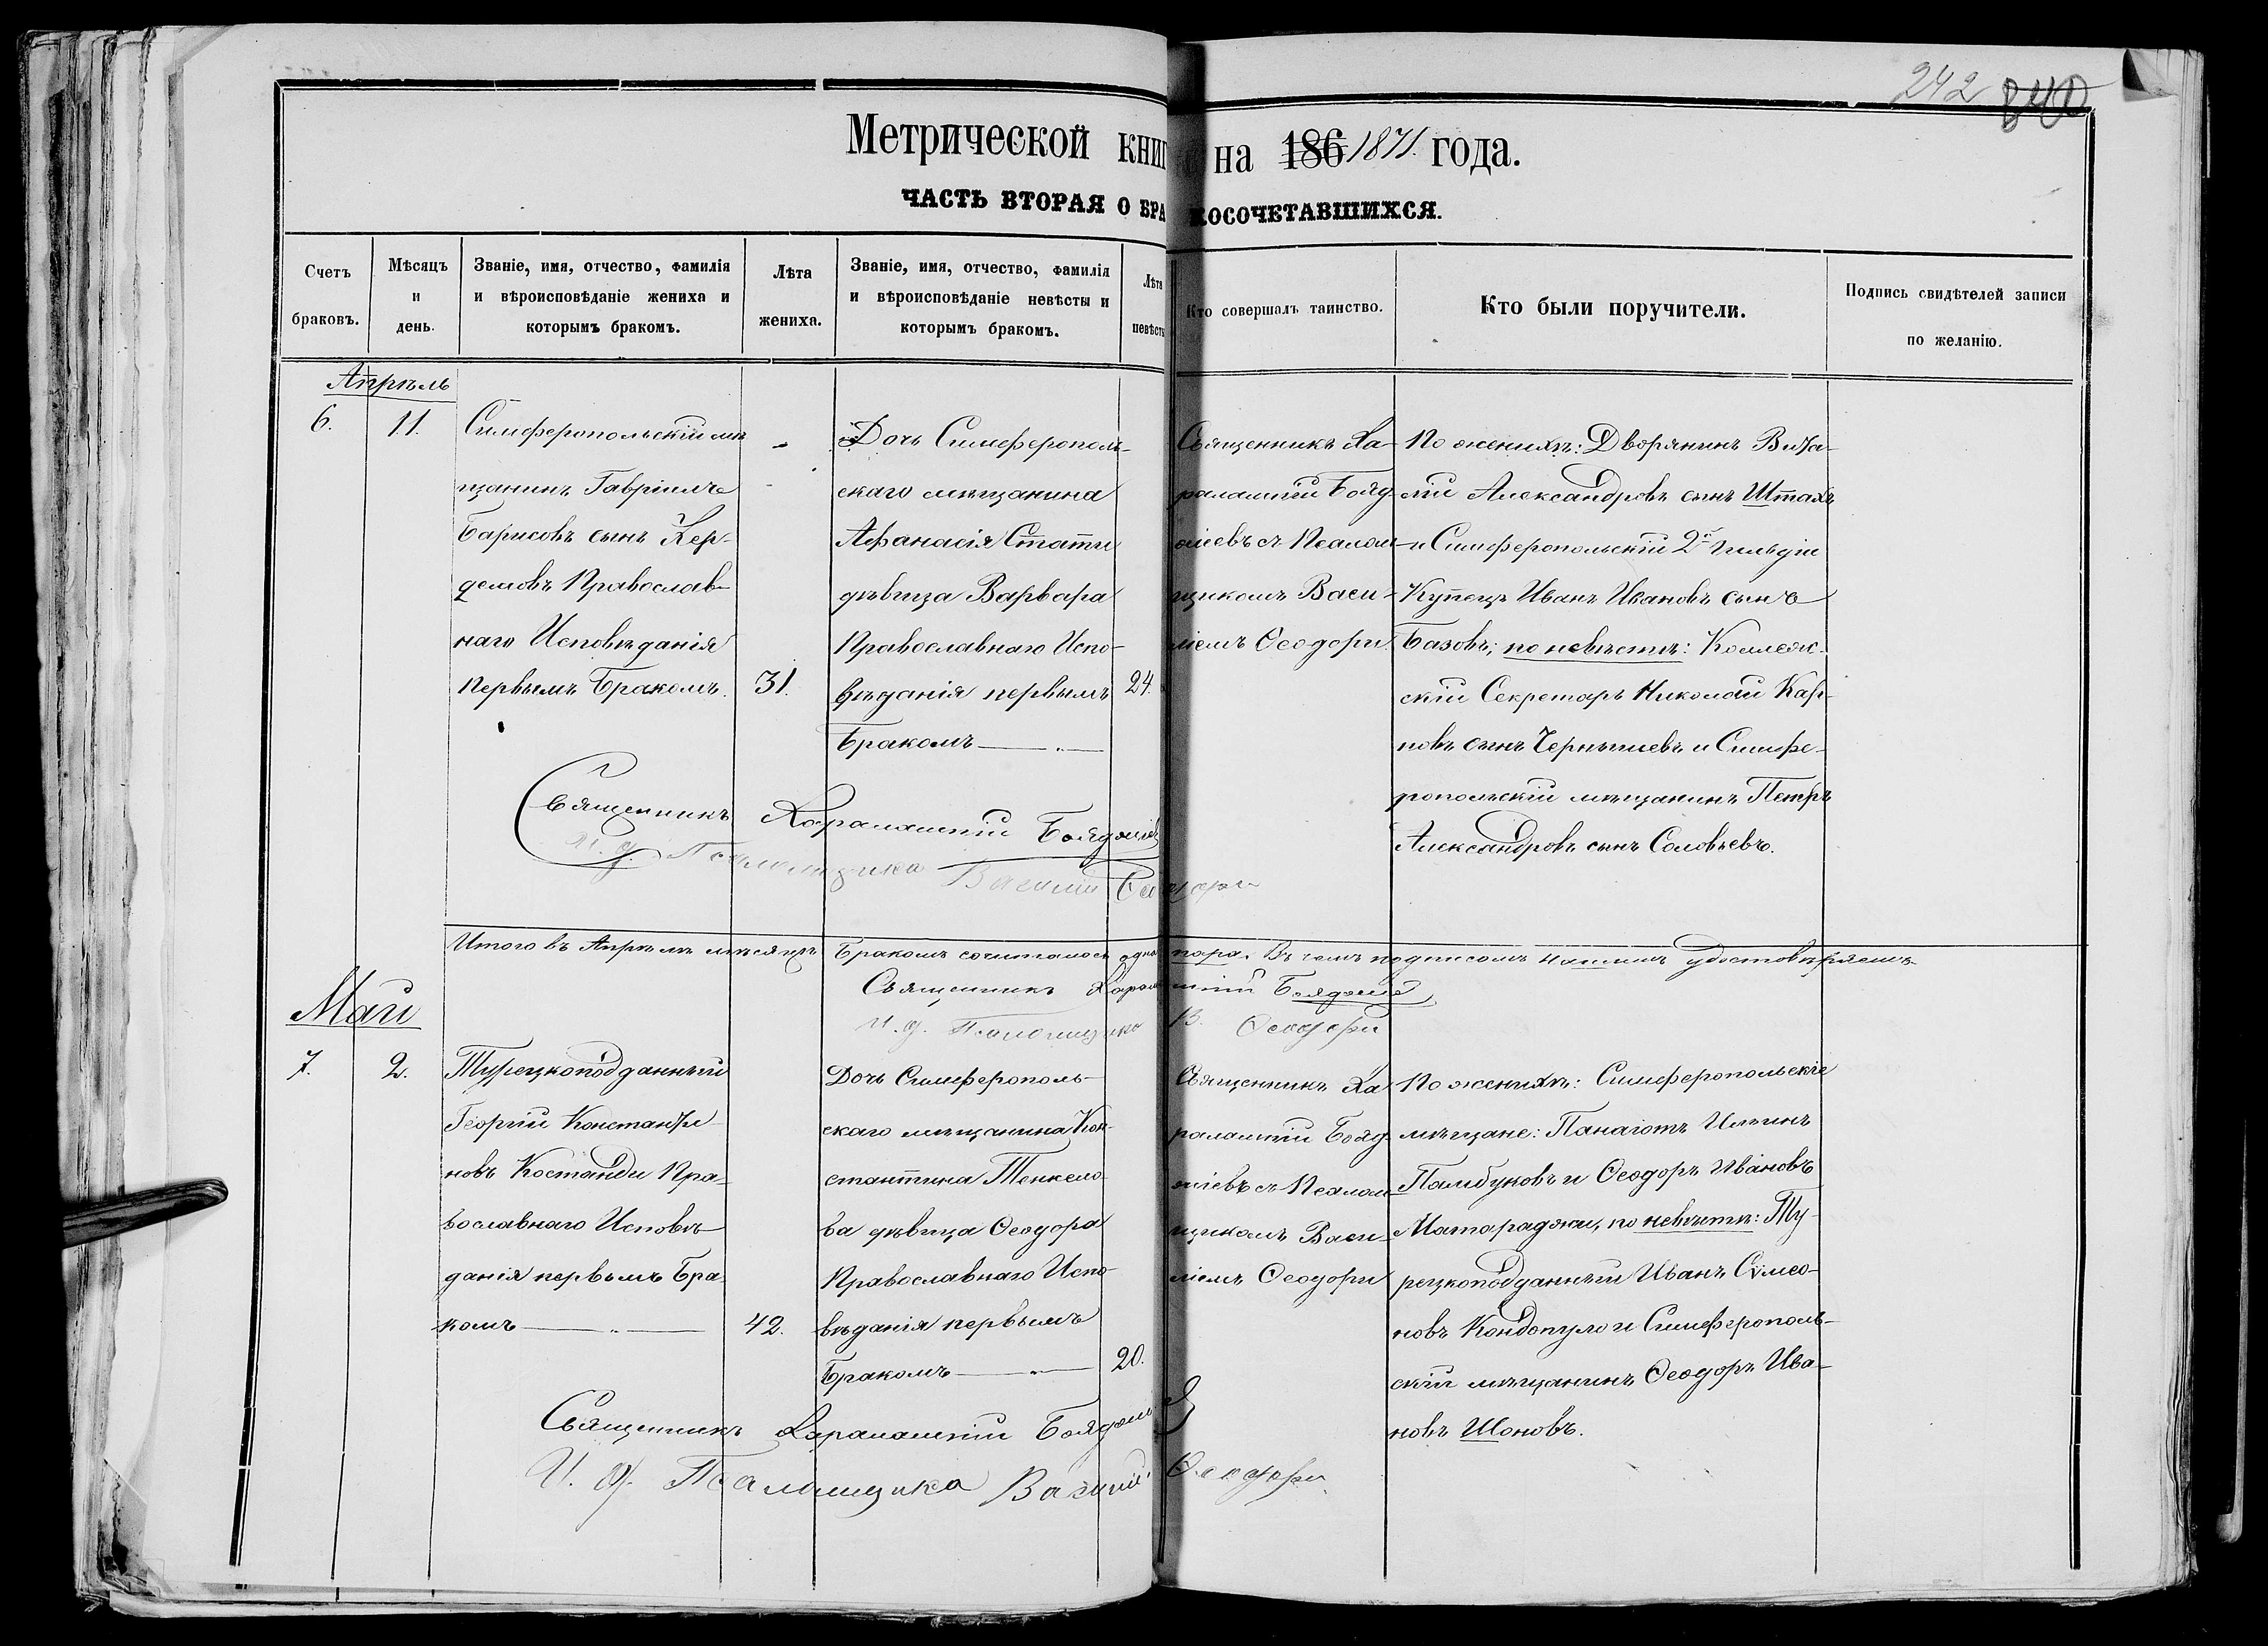 242 840
Метрической книги на 186 1871. года.
ЧАСТЬ ВТОРАЯ О БРАКОСОЧЕТАВШИХСЯ.
Счетъ
браковъ.
Мѣсяцъ
и
день.
Званіе, имя, отчество, фамилія
и вѣроисповѣданіе жениха и
которымъ бракомъ.
Лѣта
жениха.
Званіе, имя, отчество, фамилія
и вѣроисповѣданіе невѣсты и
которымъ бракомъ.
Лѣта
невѣсты
Кто совершалъ таинство.
Кто были поручители.
Подпись свидѣтелей записи
по желанію.
Апрѣль
6.
11.
Симферопольскій мѣ
щанинъ Гавріилъ
Барисовъ сынъ Кер-
демовъ Православ-
наго Исповѣданія
первымъ Бракомъ.
31.
Дочь Симферополь-
скаго мѣщанина
Афанасія Стати
дѣвица Варвара
Православнаго Испо-
вѣданія первымъ
Бракомъ
24.
Священникъ Ха-
ралампій Бояд
жіевъ съ Псалом-
щикомъ Васи-
ліемъ Ѳеодори
По женихѣ: Дворянинъ Вита-
лій Александровъ сынъ Шталь
и Симферопольскій 2й гильдіи
Купецъ Иванъ Ивановъ сынъ
Базовъ; по невѣстѣ: Коллеж-
скій Секретарь Николай Кар-
повъ сынъ Чернышевъ и Симфе-
ропольскій мѣщанинъ Петръ
Александровъ сынъ Соловьевъ.
Священникъ Харалампій Бояджіевъ
И. д. Псаломщика Василій Ѳеодори
Итого въ Апрѣлѣ мѣсяцѣ Бракомъ сочиталось одна пара. Въ чемъ подписомъ нашимъ удостовѣряемъ
Священникъ Харалампій Бояджіе
И. д. Псаломщика В. Ѳеодори
Май
7.
2.
Турецкоподданный
Георгій Константи
новъ Костанди Пра-
вославнаго Исповѣ-
данія первымъ Бра
комъ
42.
Дочь Симферополь-
скаго мѣщанина Кон-
стантина Тенкело-
ва дѣвица Ѳеодора
Православнаго Испо-
вѣданія первымъ
Бракомъ
20.
Священникъ Ха
ралампій Бояд
жіевъ съ Псалом
щикомъ Васи-
ліемъ Ѳеодори
По женихѣ: Симферопольскіе
мѣщане: Панаіотъ Ильинъ
Памбуковъ и Ѳеодоръ Ивановъ
Матараджи, по невѣстѣ: Ту-
рецкоподданный Иванъ Сѵмео-
новъ Кондопуло и Симферополь-
скій мѣщанинъ Ѳеодоръ Ива-
новъ Шоновъ.
Священникъ Харалампій Бояджіе
И. д. Псаломщика Василій Ѳеодори